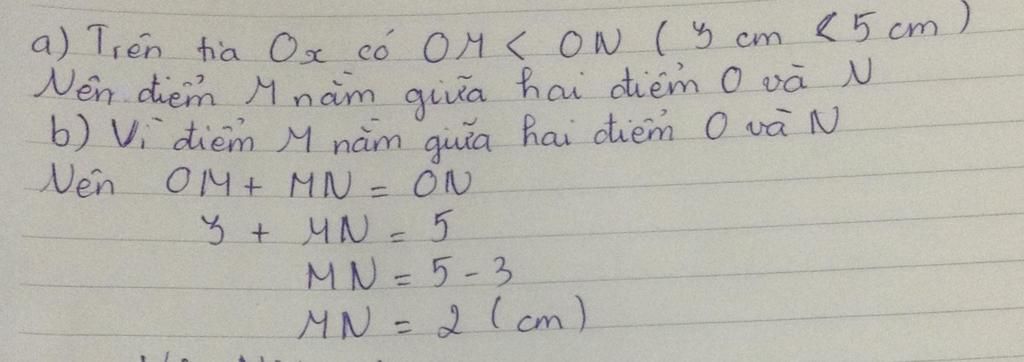 a) Trên tia Ox có OM < ON ( 3 cm < 5 cm )
Nên điểm M nằm giữa hai điểm O và N
b) Vì điểm M nằm giữa hai điểm O và N
Nên OM + MN = ON
3 + MN = 5
MN = 5 - 3
MN = 2 ( cm )